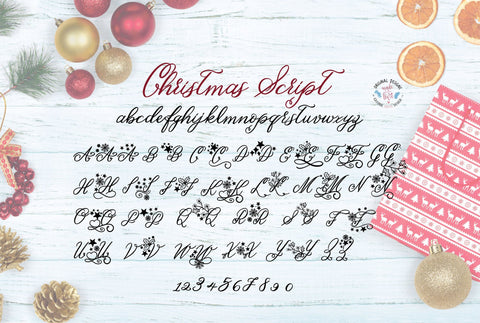 Christmas Script
abcdefghijklmnopqrstuvwxyz
A A A B B C C D D E E F F G G
H H I I J J K K L L M M N N
O O P P Q Q R R S S T T
U U V V W W X X Y Y Z Z
1 2 3 4 5 6 7 8 9 0